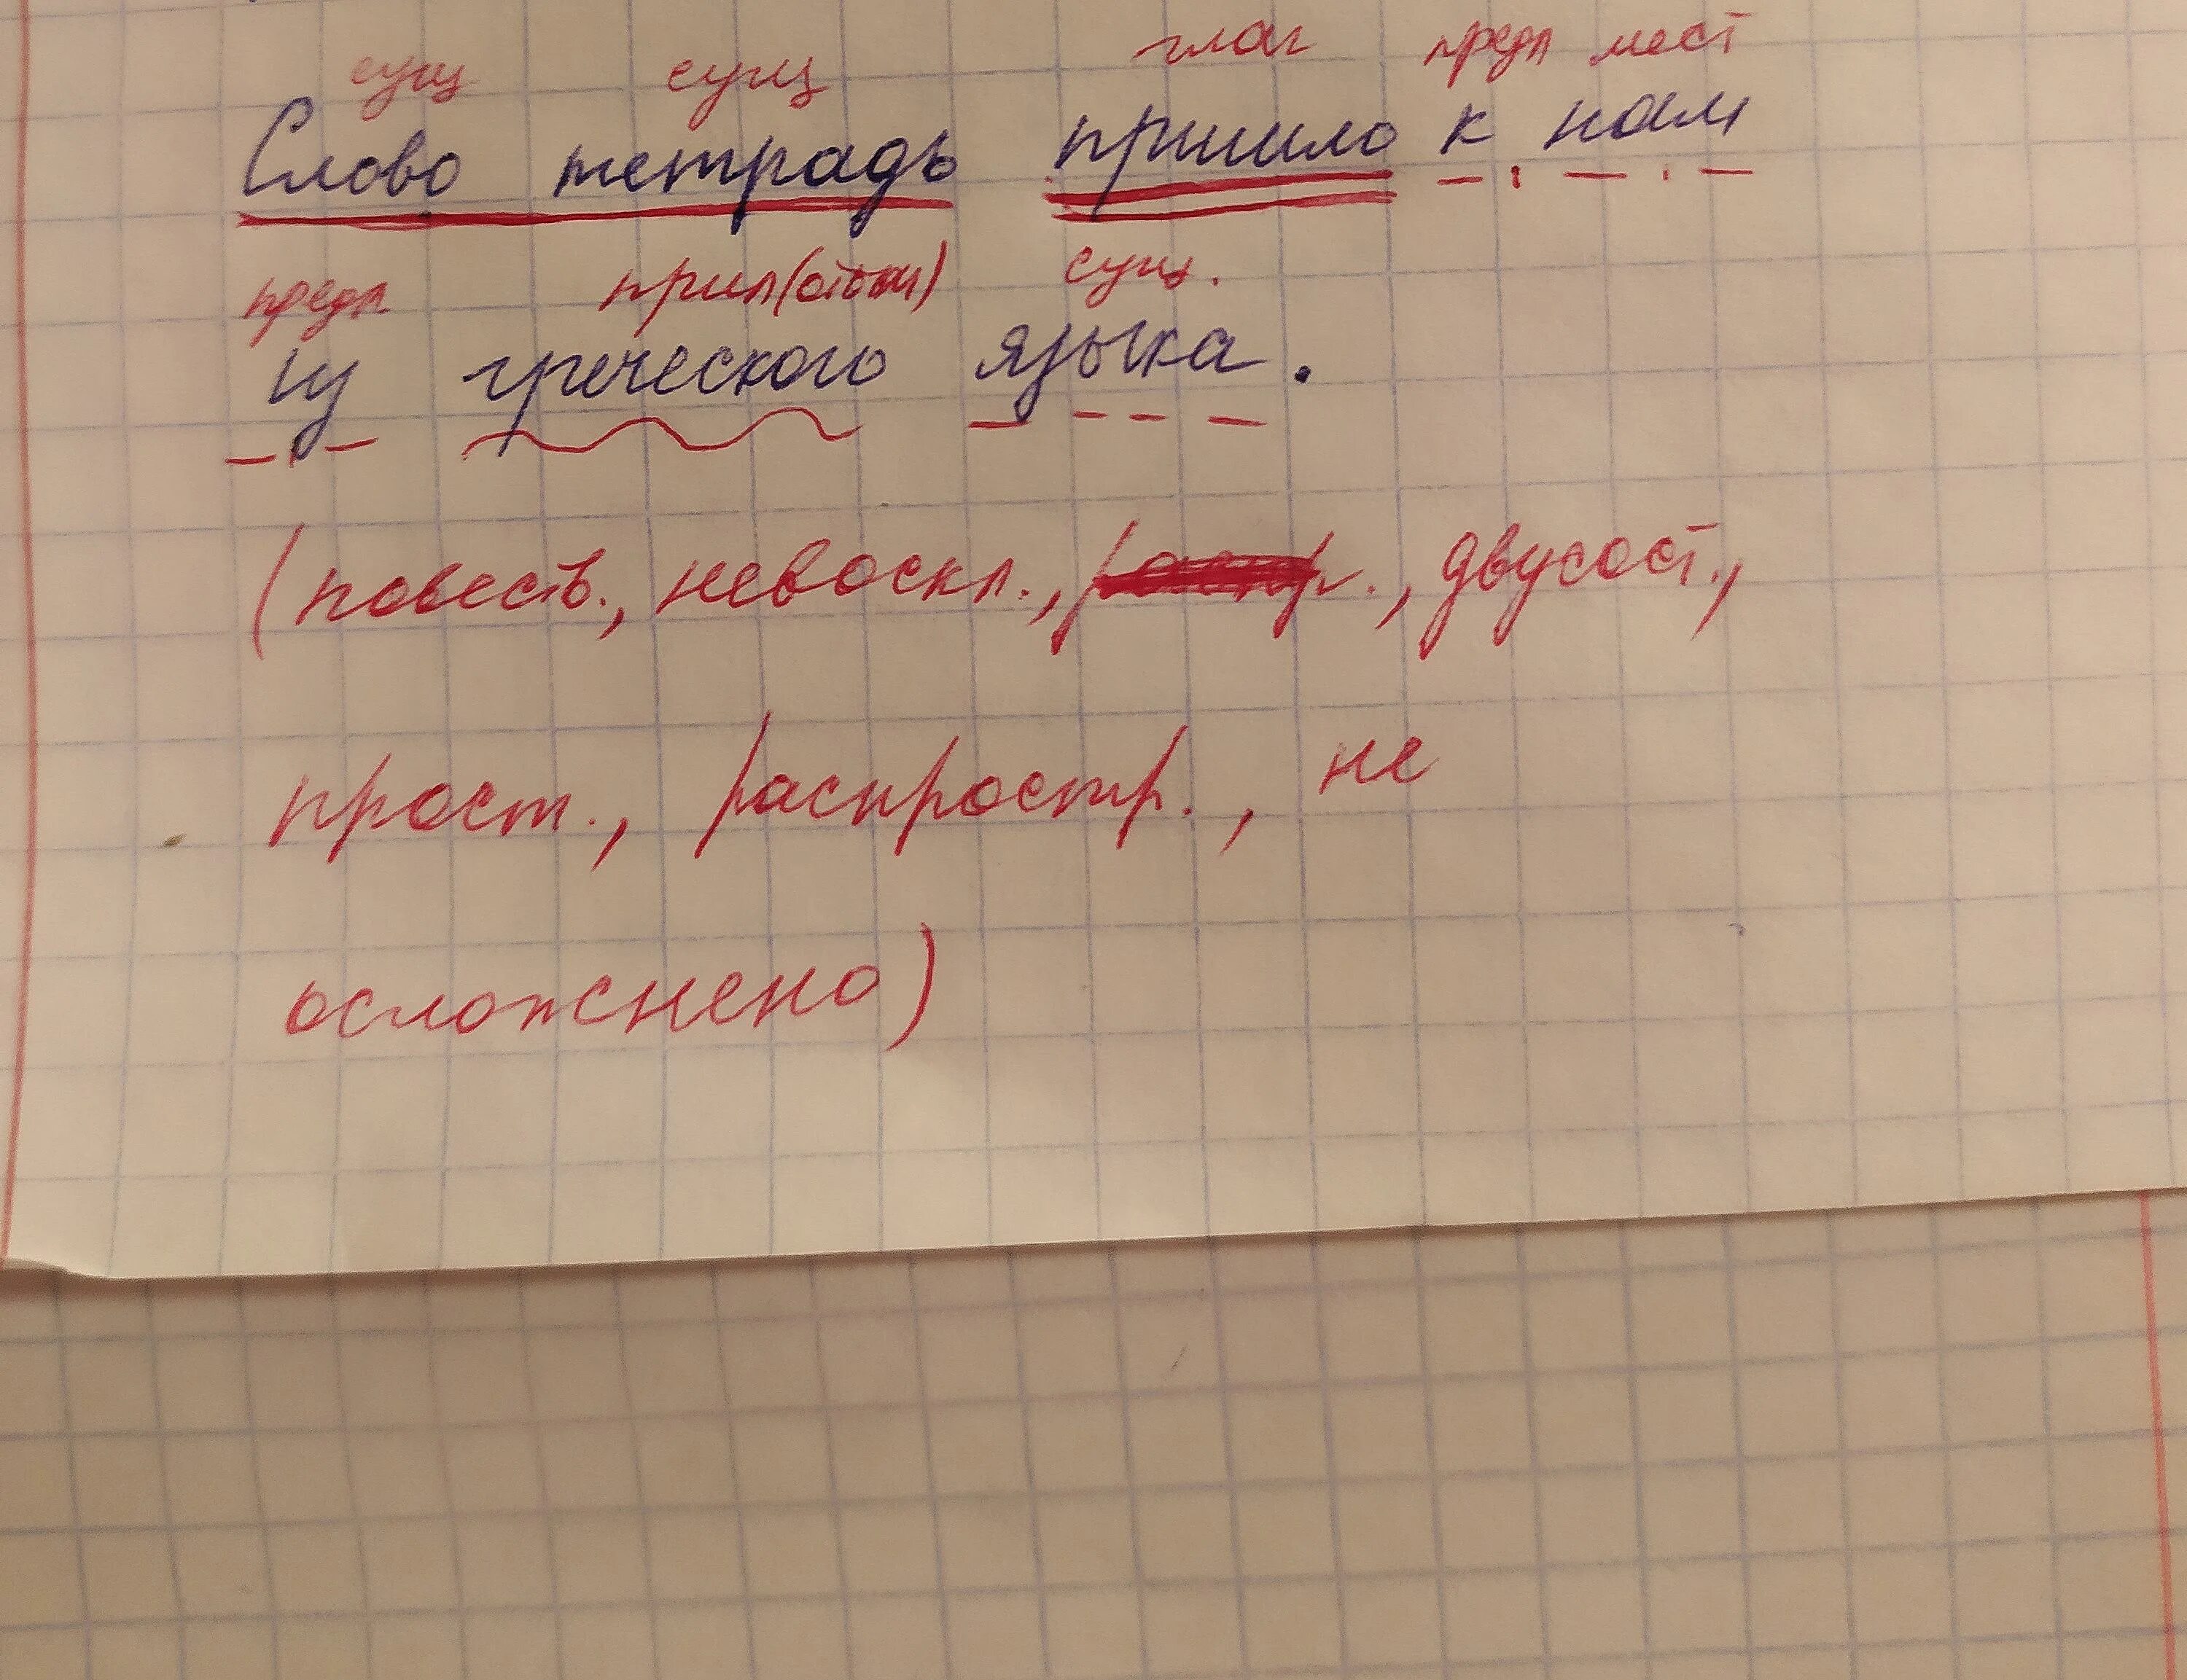 сущ сущ глаг предл мест
Слово тетрадь пришло к нам
предл. прил(относ) сущ.
из греческого языка.
(повеств., невоскл., распр., двусост.,
прост., распростр., не
осложнено)